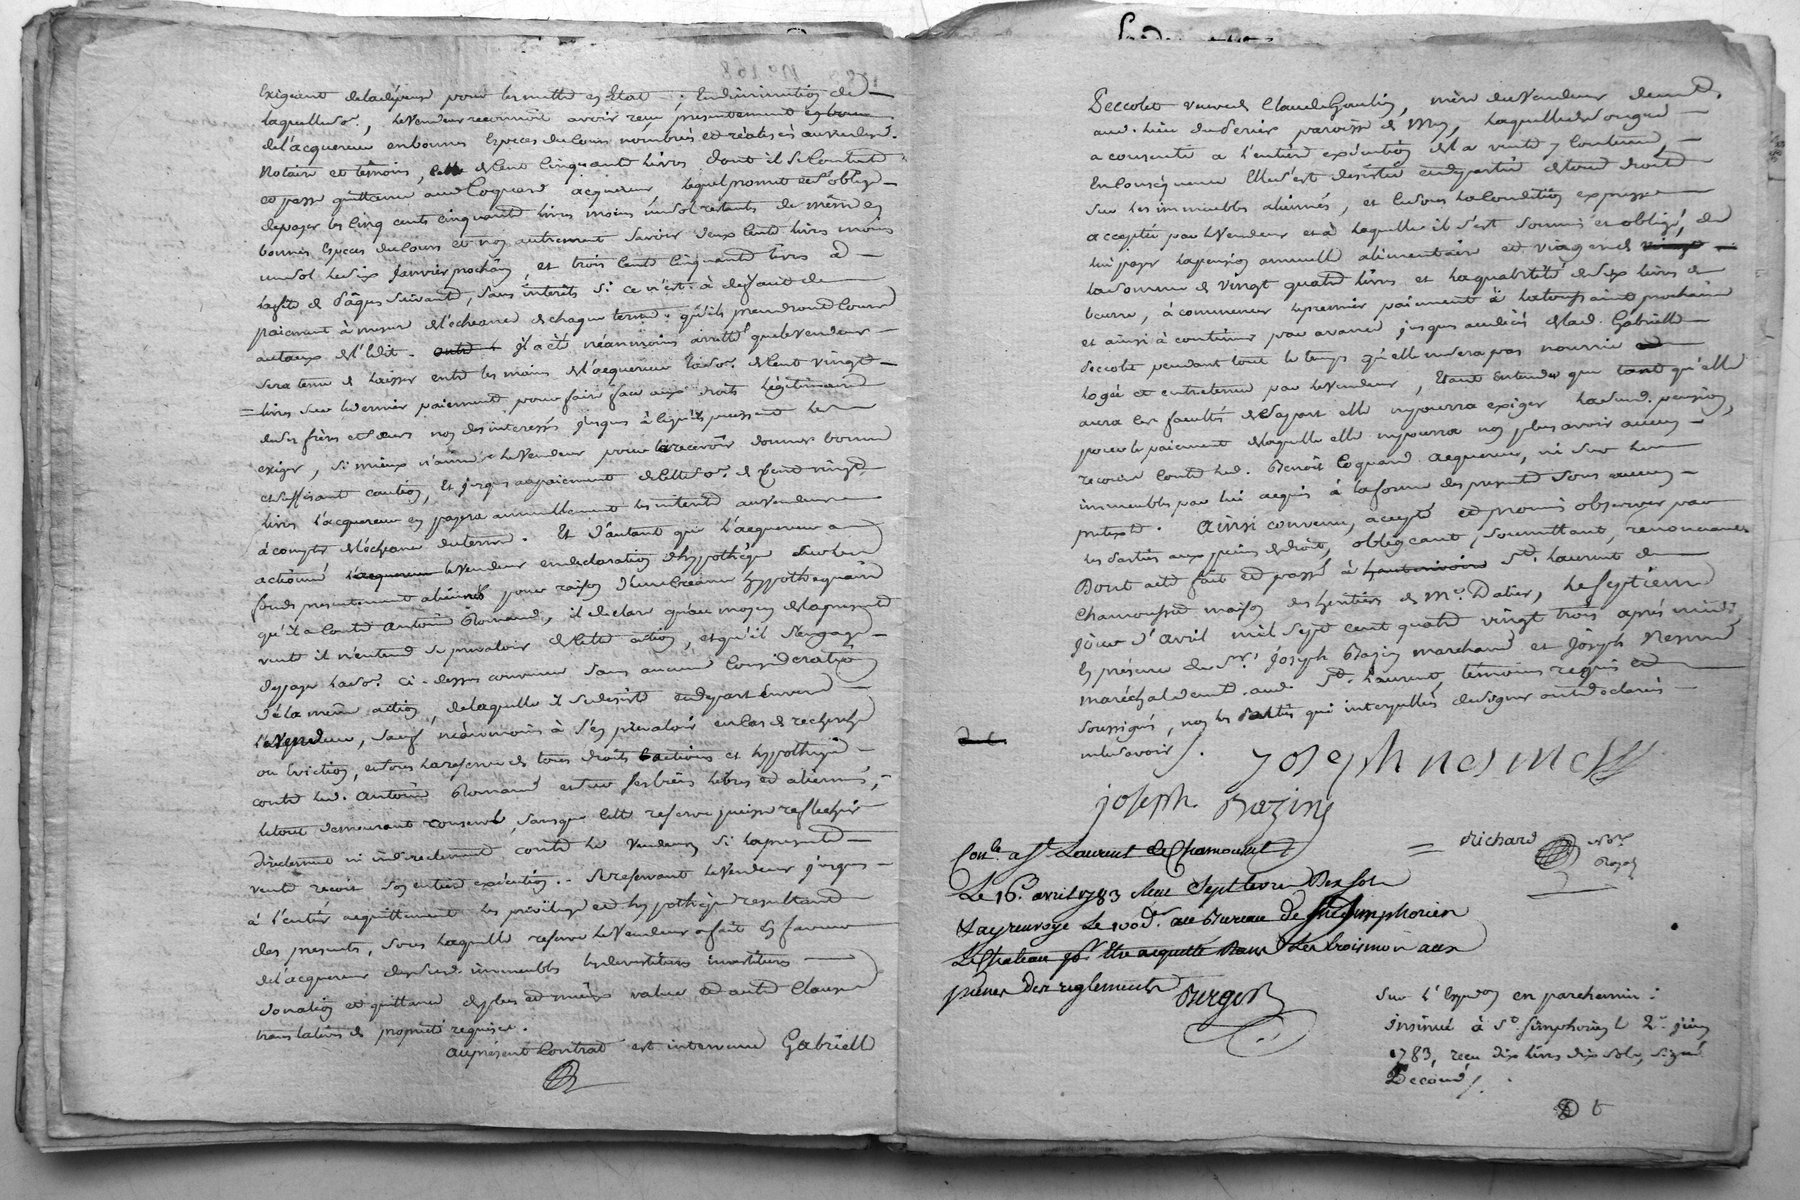 exigeant de la dépense pour les mettre en Etat ; En diminution de
laquelle so.e, le Vendeur reconnoit avoir reçu présentement
de l'acquereur en bonnes Espèces du Cours nombrées et réalisées au vu desd.
Notaire et témoins, celle de Cent Cinquante livres dont il se Contente
et passe quittance aud Coquard acquereur lequel promet et s'oblige
de payer les Cinq cents cinquante livres moins un sol restants de même en
bonnes Espèces du Cours et non autrement savoir deux Cents livres moins
un sol le six Janvier prochain, et trois Cent Cinquante livres à
la fête de Pâques suivante, sans intérêts si ce n'est à deffaut de
paiement à mesure de l'écheance de chaque terme qu'ils prendront Cours
au taux de l'Edit. il a été néanmoins arretté que le Vendeur
sera tenu de laisser entre les mains de l'acquereur lad so.e de Cent vingt
livres sur le dernier paiement pour faire face aux droits légitimaires
de ses frères et sœurs non desinteressés jusques à ce qu'ils puissent les
exiger, si mieux n'aime le Vendeur pour la recevoir donner bonne
et suffisante caution, Et jusques au paiement de cette so.e de Cent vingt
livres l'acquereur en payera annuellement les interets au vendeur
à compter de l'écheance du terme. Et d'autant que l'acquereur a
actionné l'acquereur le Vendeur en déclaration d'hypothèque sur les
fonds présentement aliénés pour raison d'une Créance hypothequaire
qu'il a Contre Antoine Romand, il déclare qu'au moyen de la présente
vente il n'entend se prevaloir de cette action, et qu'il s'engage
de payer la so.e ci-dessus convenue sans aucune Considération
de la même action, de laquelle il se désiste et départ Envers
le Vendeur, sauf néanmoins à s'en prévaloir en cas de recherche
ou éviction, et sous la reserve de tous droits actions et hypothèques
contre led. Antoine Romand et sur ses biens libres et aliénés,
le tout demeurant conservé, sans que cette reserve puisse reflechir
directement ni indirectement contre le Vendeur si la présente
vente reçoit son entière exécution. Se reservant le Vendeur jusques
à l'entier acquittement les privilege et hypothèque resultants
des presentes, sous laquelle reserve le Vendeur a fait En faveur
de l'acquereur desdits immeubles les devestitures investitures
donation et quittance de plus et mieux value et autres Clauses
translatives de propriété requises.
au présent Contrat est intervenue Gabrielle
Seccolet veuve de Claude Goulin, mère du Vendeur demeurt.
aud. lieu du Perier paroisse de Mey, laquelle de son gré
a consenti à l'entière exécution de la vente y Contenue,
En Conséquence Elle s'est désistée et départie de tous droits
sur les immeubles aliénés, et ce sous la Condition expresse
acceptée par le Vendeur et à laquelle il s'est soumis et obligé, de
lui payer la pension annuelle alimentaire et viagere de
la somme de vingt quatre livres et la quantité de six livres de
beurre, à commencer le premier paiement à la toussaint prochaine
et ainsi à continuer par avance jusques au décès de lad. Gabrielle
Seccolet pendant tout le temps qu'elle ne sera pas nourrie
logée et entretenue par le Vendeur, Etant entendu que tant qu'elle
aura les facultés de sa part elle ne pourra exiger lad. pension,
pour le paiement de laquelle elle ne pourra non plus avoir aucun
recours Contre led. Benoit Coquard acquereur, ni sur les
immeubles par lui acquis à la forme des presentes sous aucun
pretexte. Ainsi convenu, accepté et promis observer par
les Parties aux peines de droit, obligeant, soumettant, renonceant
Dont acte fait et passé à hauterivoire St. Laurent de
Chamousset maison des heritiers de Me. Dalier, le septieme
Jour d'avril mil sept cent quatre vingt trois après midi
En présence de Sr. Joseph Bazin marchand et Joseph Nesme
maréchal demt. aud. St. Laurent, témoins requis et
soussignés, non les Parties qui interpellés de signer ont déclaré
ne le savoir /.
Joseph nesme
joseph Bazin
Richard Not. Royal
Con.lé a St Laurent de Chamousset
Le 16e. avril 1783 Reçu Sept livres Dix sols
& ay renvoyé Le 100e d. au Bureau de St Simphorien
Le Chateau pr. Etre acquitté Dans Les trois mois aux
peines des reglements
Berger
Sur l'Expedon en parchemin :
Insinué à St. Simphorien le 2e. juin
1783, reçu dix livres dix sols, signé
Second /.